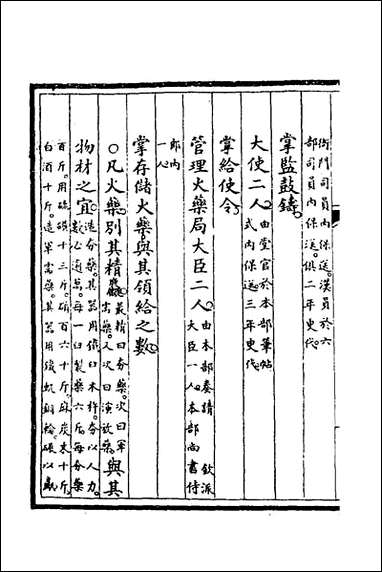 衙門司員內保送漢員於六
部司員內保送俱二年更代
掌監鼓鑄
大使二人由堂官於本部筆帖
式內保送三年更代
掌給使令
管理火藥局大臣二人由本部奏請 欽派
大臣一人本部尚書侍
郎內
一人
掌存儲火藥與其領給之數
○凡火藥別其精麤最精曰夯藥次曰軍
需藥又次曰演放藥與其
物材之宜造夯藥其器用石臼木杵夯以人力
數必逾萬每一臼製藥六斤每夯藥
百斤用硫磺十三斤硝百六十斤麻炭末十斤
白酒十斤造軍需藥其器用